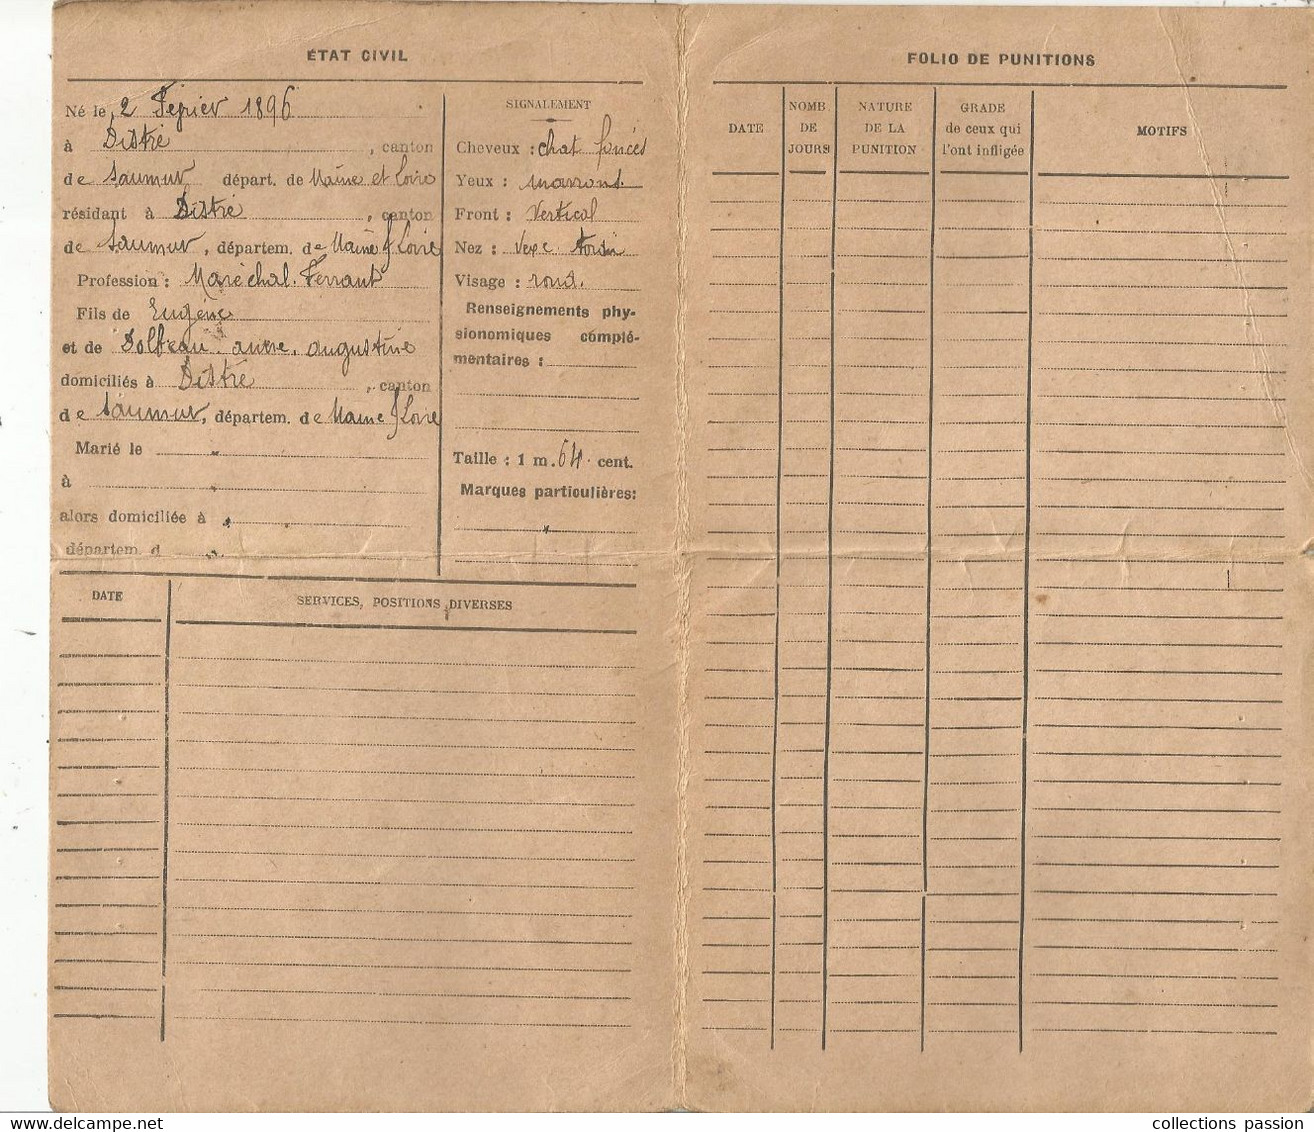 ÉTAT CIVIL
Né le 2 Fevrier 1896
à Distré, canton
de Saumur départ. de Maine et Loire
résidant à Distré, canton
de Saumur, départem. de Maine & Loire
Profession : Maréchal. Ferrant
Fils de Eugène
et de Dolbeau. anne. augustine
domiciliés à Distré, canton
de Saumur, départem. de Maine & Loire
Marié le "
à "
alors domiciliée à "
départem. d "
SIGNALEMENT
Cheveux : chat foncés
Yeux : marrons.
Front : Vertical
Nez : Vexe
Visage : rond.
Renseignements phy-
sionomiques complé-
mentaires :
Taille : 1 m. 64. cent.
Marques particulières:
"
DATE
SERVICES, POSITIONS DIVERSES
FOLIO DE PUNITIONS
DATE
NOMB
DE
JOURS
NATURE
DE LA
PUNITION
GRADE
de ceux qui
l'ont infligée
MOTIFS
collections passion